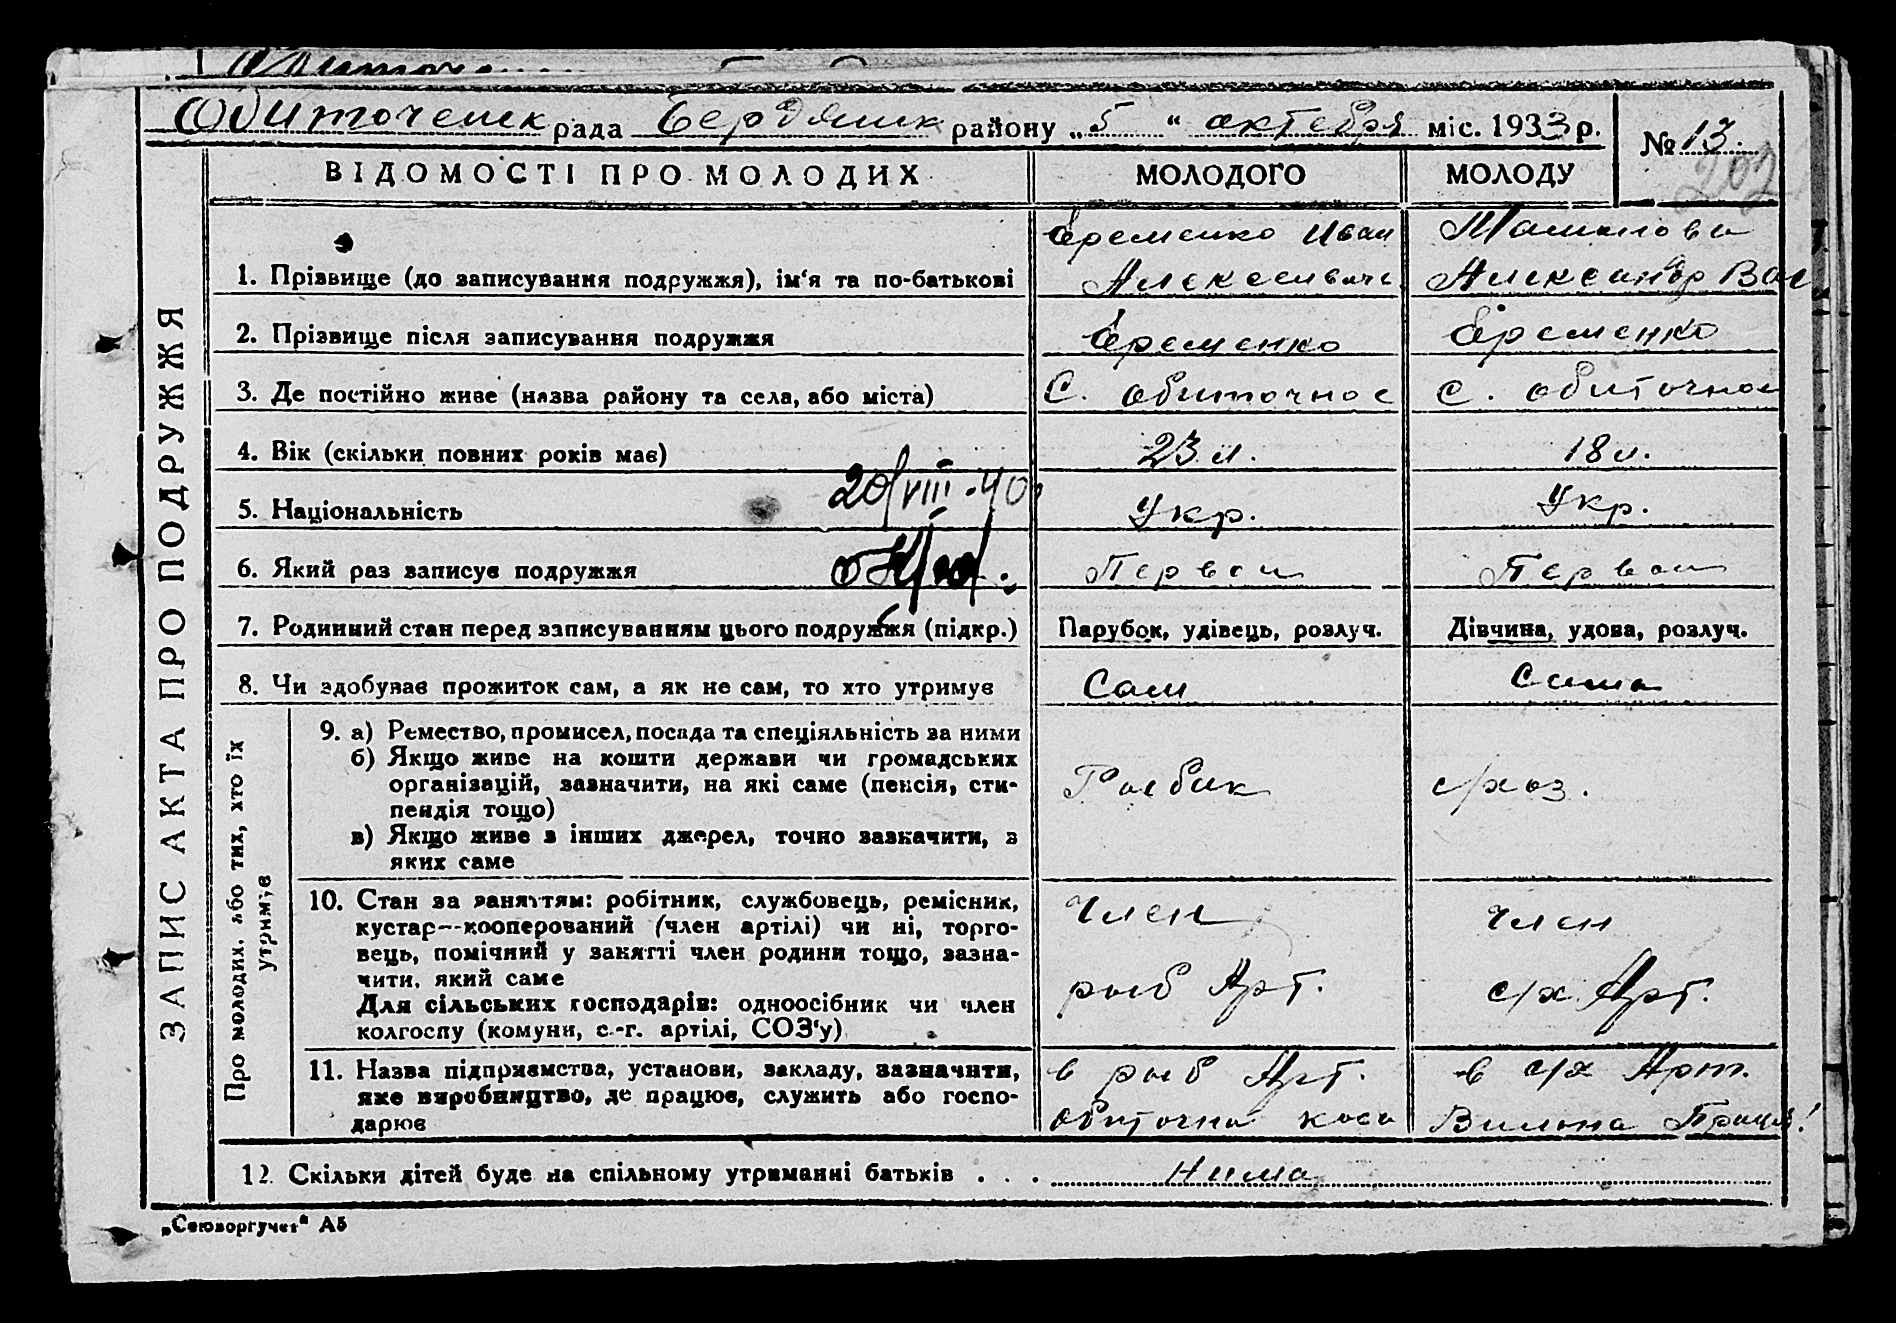 Обиточенск рада Бердянск району „5" октебря міс. 1933 р.
№ 13.
202
ЗАПИС АКТА ПРО ПОДРУЖЖЯ
ВІДОМОСТІ ПРО МОЛОДИХ МОЛОДОГО МОЛОДУ
Еременко Иван
1. Прізвище (до записування подружжя), ім'я та по-батькові Александр Вас
2. Прізвище після записування подружжя Еременко Еременко
3. Де постійно живе (назва району та села, або міста) С. обиточное с. обиточное
4. Вік (скільки повних років має) 23 л. 18 л.
20/VIII-40
5. Національність Укр. Укр.
6. Який раз записує подружжя Первой Первой
7. Родинний стан перед записуванням цього подружжя (підкр.) Парубок, удівець, розлуч. Дівчина, удова, розлуч.
8. Чи здобуває прожиток сам, а як не сам, то хто утримує Сам Сама
Про молодих, або тих, хто їх
утримує
9. а) Ремество, промисел, посада та спеціяльність за ними
б) Якщо живе на кошти держави чи громадських
організацій, зазначити, на які саме (пенсія, сти-
пендія тощо) Рыбак с/хоз.
в) Якщо живе з інших джерел, точно зазначити, з
яких саме
10. Стан за заняттям: робітник, службовець, ремісник, член член
кустар--кооперований (член артілі) чи ні, торго-
вець, помічний у занятті член родини тощо, зазна-
чити, який саме рыб Арт. с/х Арт.
Для сільських господарів: одноосібник чи член
колгоспу (комуни, с.-г. артілі, СОЗ'у)
11. Назва підприємства, установи, закладу, зазначити, в рыб Арт. в с/х Арт.
яке виробництво, де працює, служить або госпо- обиточна коса
дарює
12. Скільки дітей буде на спільному утриманні батьків . . . нима
„Союзоргучет" А5